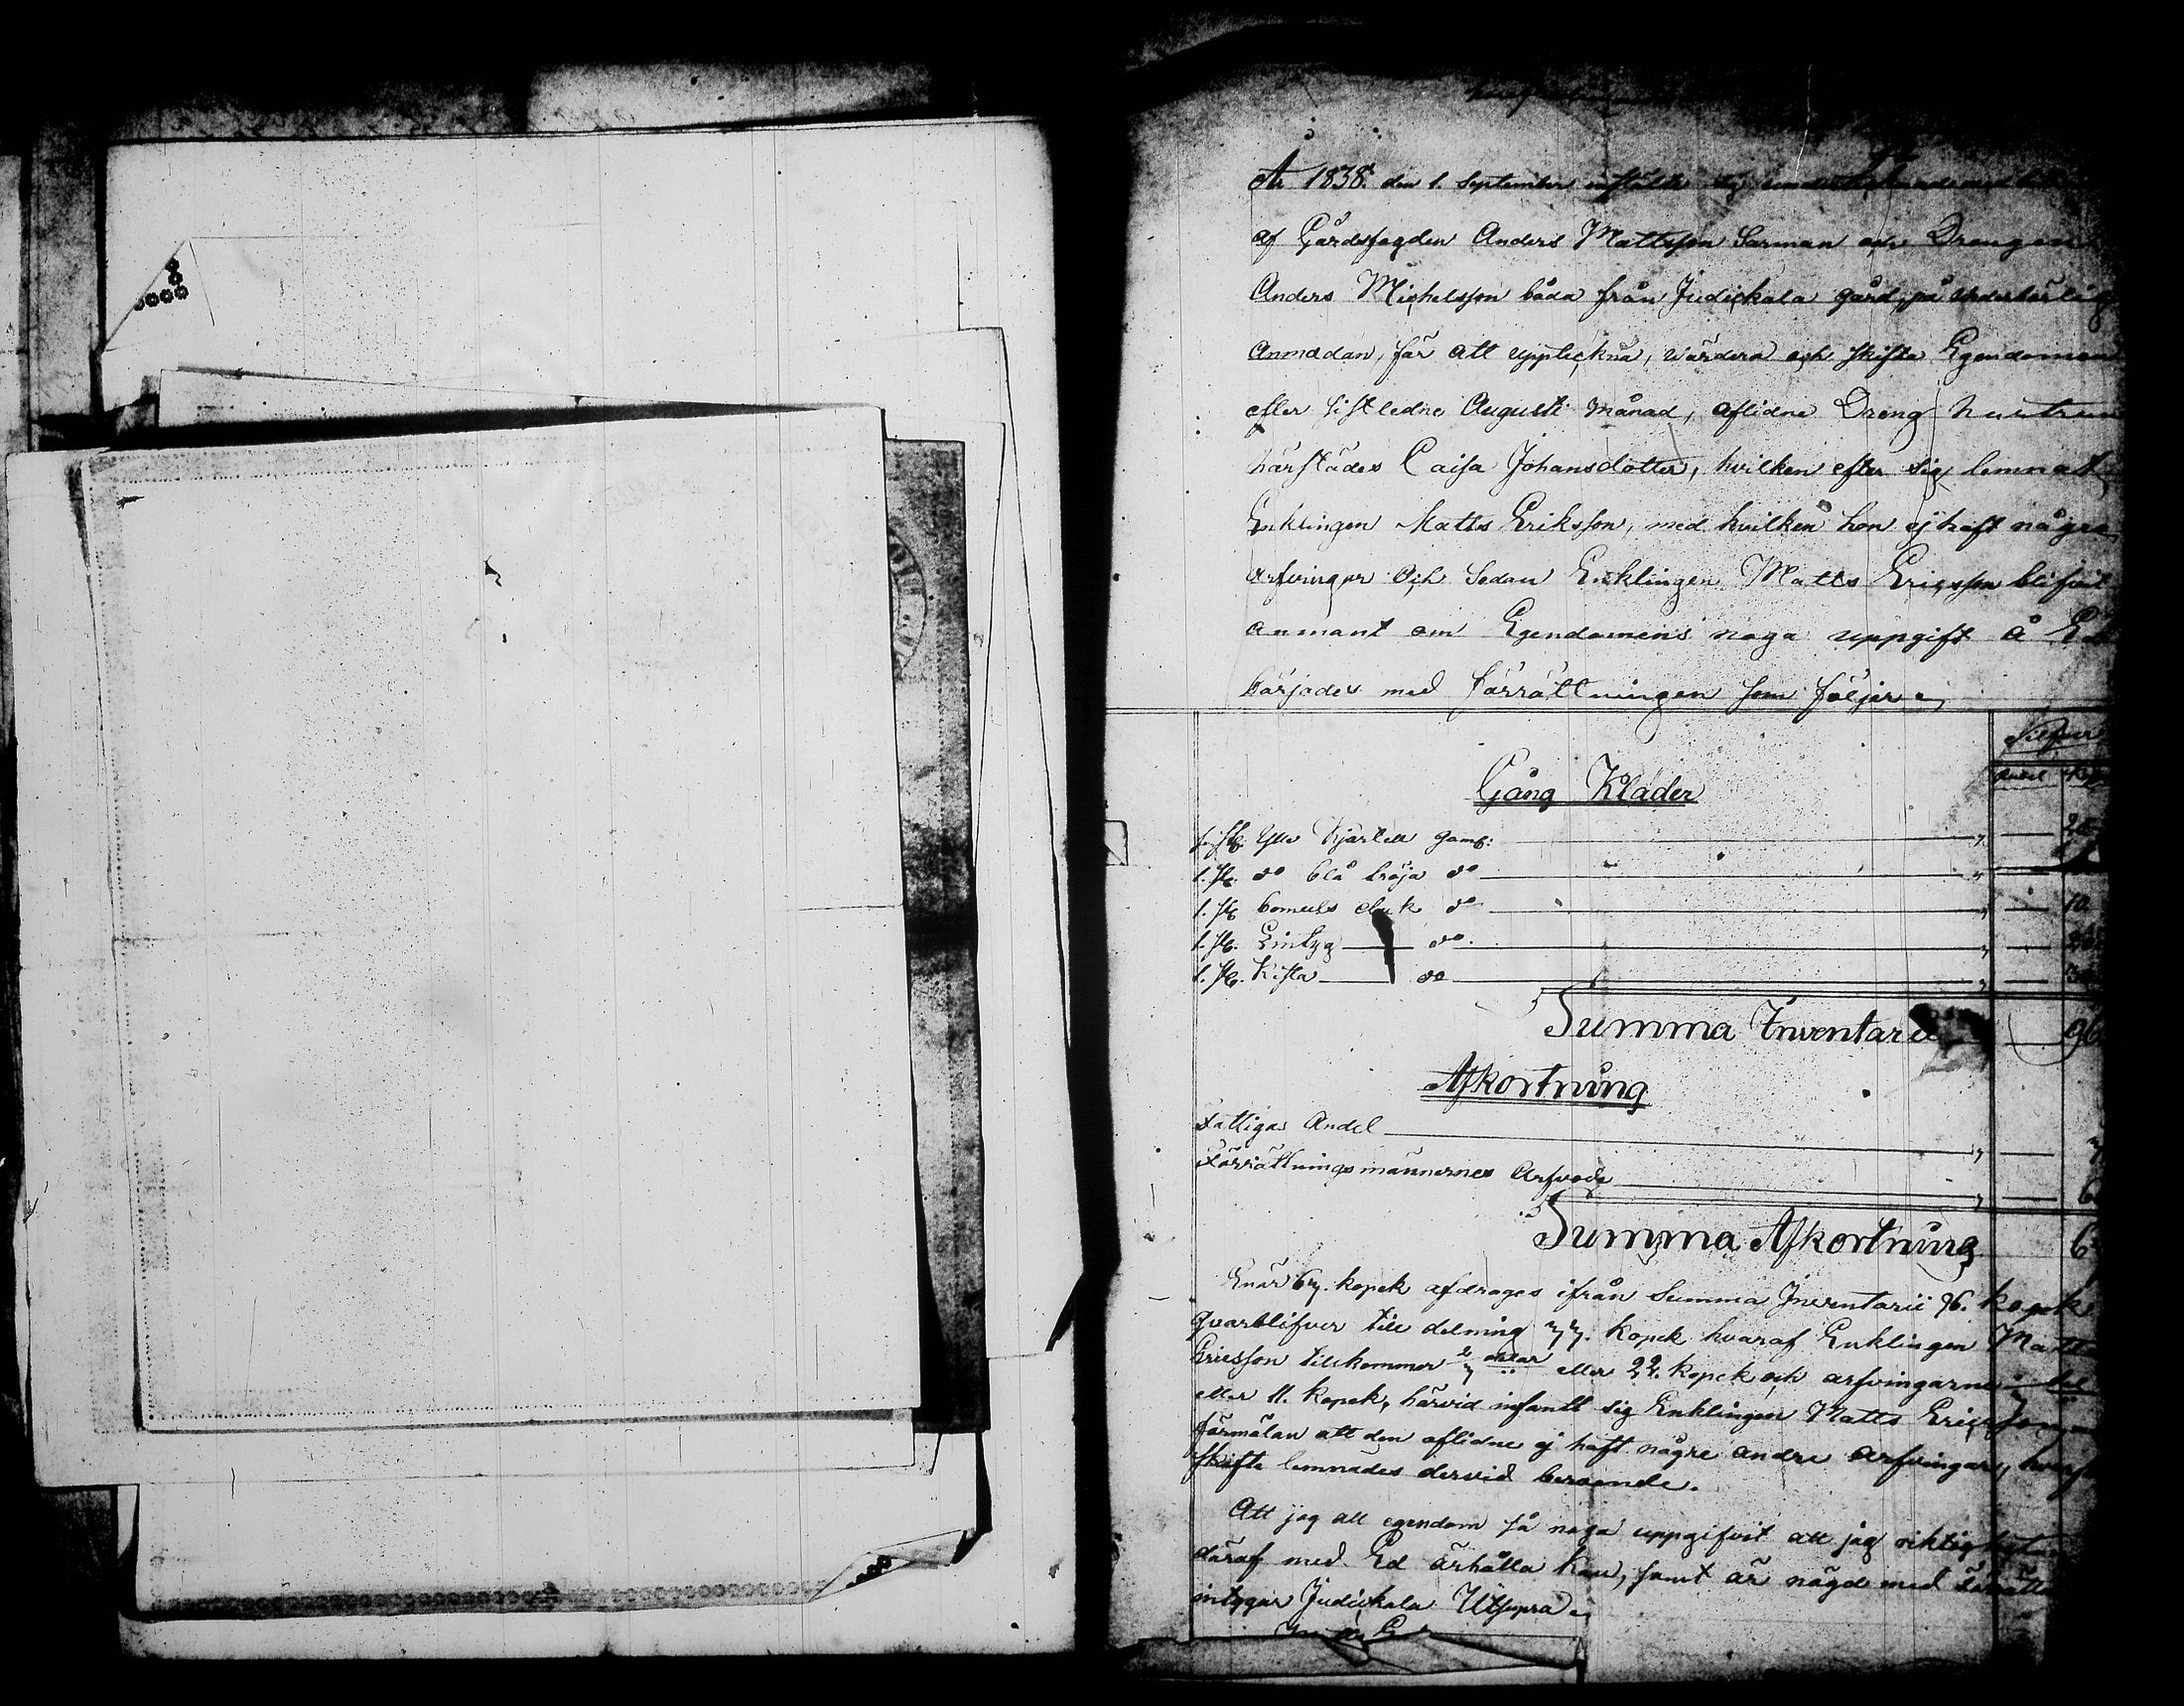 År 1838. den 1. September instälte sig undertecknade med
af Gårdsfogden Anders Mattsson Sarman och Drengen
Anders Michelsson båda från Judickala gård, på vederbörlig
Anmodan, för att uppteckna, värdera och skifta Egendomen
efter sistledne Augusti månad, aflidne Dreng hustrun
härstädes Caisa Johansdotter, hvilken efter sig lemnat
Enklingen Matts Eriksson, med hvilken hon ej haft några
arfvingar Och Sedan Enklingen Matts Ericsson blifvit
anmant om Egendomens noga uppgift å Ed
börjades med förrättningen som följer
Silfver
Rubel Kop
Gång Kläder
1. st. Ylle Kjortell gam: 20
1. st. do blå tröja do
1. st. bomuls duk do 10
1. st. Lintyg do.
1. st. Kista do 30
Summa Inventarii 96
Afkortning
Fattigas Andel
Förrättningsmännernes Arfvode 6
Summa Afkortning 6
Enär 63. kopek afdrages ifrån Summa Inventarii 96. kopek
qvarblifver till delning 33. kopek hvaraf Enklingen Matts
Ericsson tillkommer 2/3 delar eller 22. kopek och arfvingarne 1/3 del
eller 11. kopek, härvid infantt sig Enklingen Matts Ericsson
förmälan att den aflidne ej haft några andre arfvingar,
skifte lemnades dervid beroende.
Att jag all egendom så noga uppgifvit att jag riktigheten
däraf med Ed ärhålla kan, samt är nögd med
intygar Judickala Utsupra